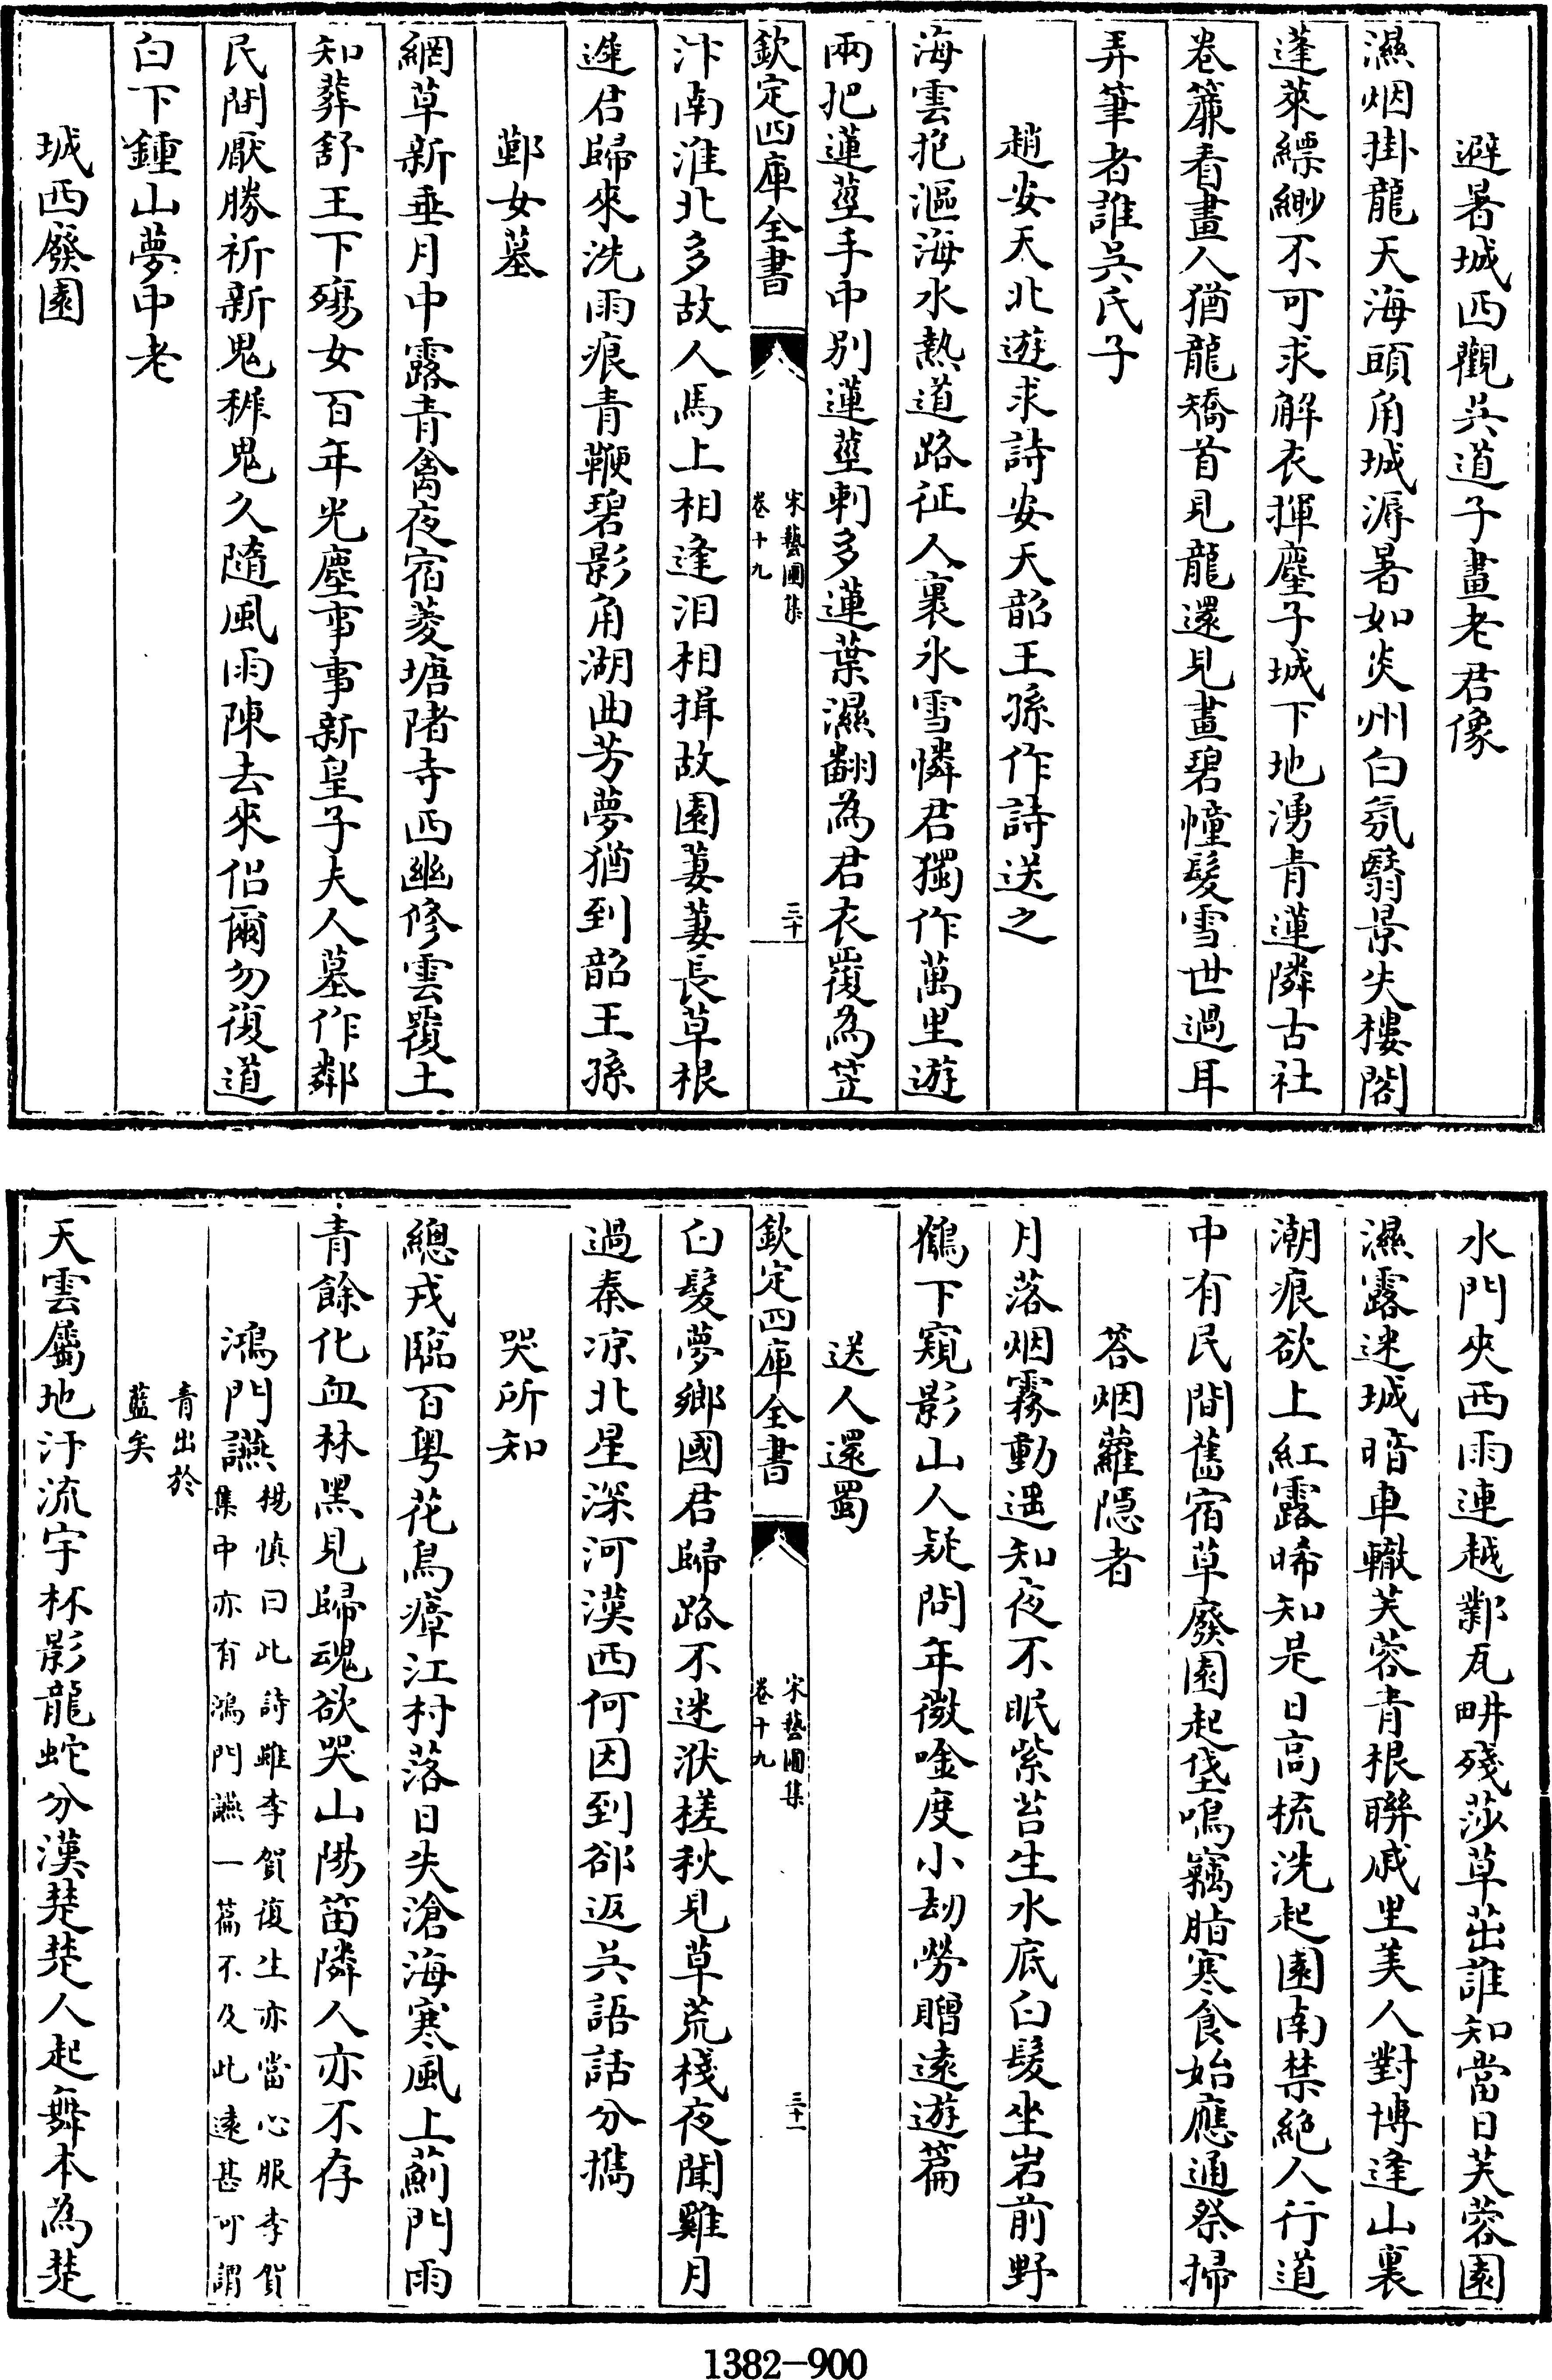 避暑城西觀吳道子畫老君像
濕烟掛龍天海頭角城溽暑如炎州白氛翳景失樓閣
蓬萊縹緲不可求解衣揮塵子城下地湧青蓮隣古社
卷簾看畫人猶龍矯首見龍還見畫碧幢髮雪世過耳
弄筆者誰吳氏子
趙安天北遊求詩安天韶王孫作詩送之
海雲抱漚海水熱道路征人裹氷雪憐君獨作萬里遊
兩把蓮莖手中別蓮莖刺多蓮葉濕翻為君衣覆為笠
欽定四庫全書
宋藝圃集
卷十九
三十
汴南淮北多故人馬上相逢泪相揖故園萋萋長草根
遲君歸來洗雨痕青鞭碧影角湖曲芳夢猶到韶王孫
鄞女墓
網草新垂月中露青禽夜宿菱塘陼寺西幽修雲覆土
知葬舒王下殤女百年光塵事事新皇子夫人墓作鄰
民間厭勝祈新鬼稚鬼久隨風雨陳去來侶爾勿復道
白下鍾山夢中老
城西廢園
水門夾西雨連越鄴瓦畊殘莎草茁誰知當日芙蓉園
濕露迷城暗車轍芙蓉青根聯戚里美人對博逢山裏
潮痕欲上紅露晞知是日高梳洗起園南禁絕人行道
中有民間舊宿草廢園起垡鳴竊脂寒食始應通祭掃
荅烟蘿隱者
月落烟霧動遥知夜不眠紫苔生水底白髮坐岩前野
鶴下窺影山人疑問年微唫度小刼勞贈遠遊篇
送人還蜀
欽定四庫全書
宋藝圃集
卷十九
三十一
白髮夢鄉國君歸路不迷洑槎秋見草荒棧夜聞雞月
過秦凉北星深河漢西何因到郤返吳語話分攜
哭所知
總戎臨百粤花鳥瘴江村落日失滄海寒風上薊門雨
青餘化血林黑見歸魂欲哭山陽笛隣人亦不存
鴻門讌 楊慎曰此詩雖李賀復生亦當心服李賀
集中亦有鴻門讌一篇不及此遠甚可謂
青出於
藍矣
天雲屬地汗流宇杯影龍蛇分漢楚楚人起舞本為楚
1382-900